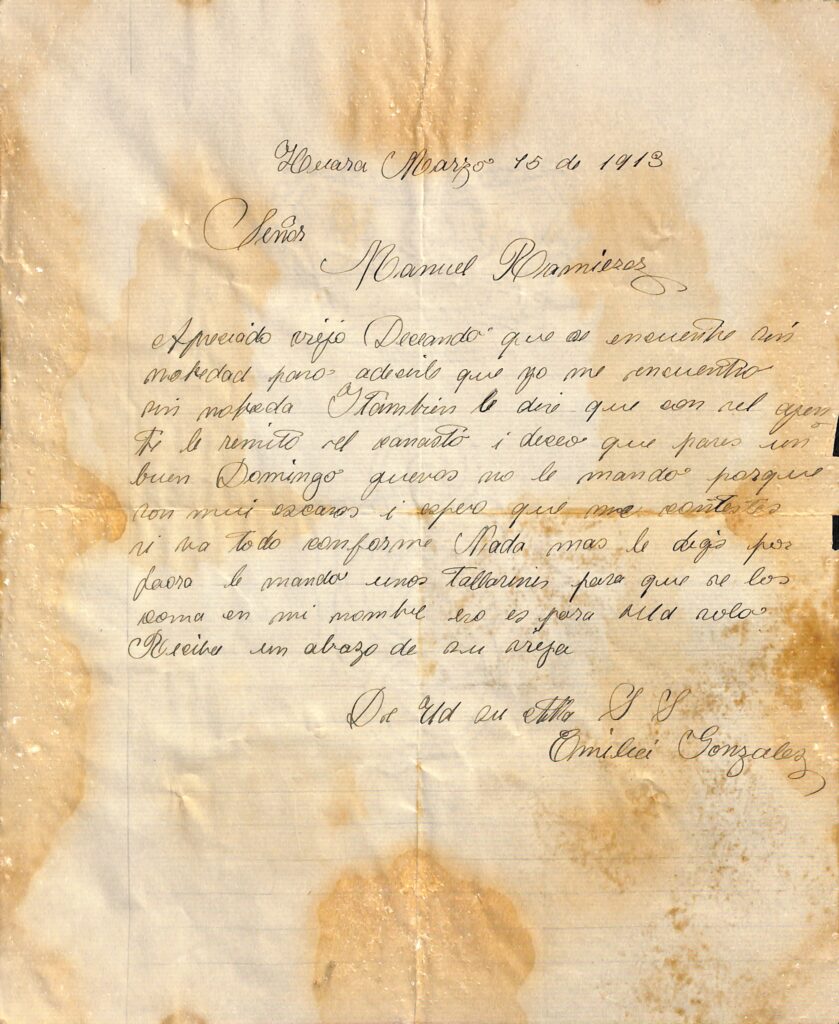 Huara Marzo 15 de 1913
Señor
Manuel Ramirez
Apreciado viejo Deceando que se encuentre sin
novedad paso adecirle que yo me encuentro
sin noveda I tambien le dire que con el ajen
te le remito el canasto i deceo que pases un
buen Domingo guevos no le mando porque
son mui escasos i espero que me contestes
si va todo conforme Nada mas le digo por
le mando unos tallarines para que se los
coma en mi nombre eso es para Ud solo
Reciba un abazo de su vieja
De Ud su atta S S
Emilia Gonzalez